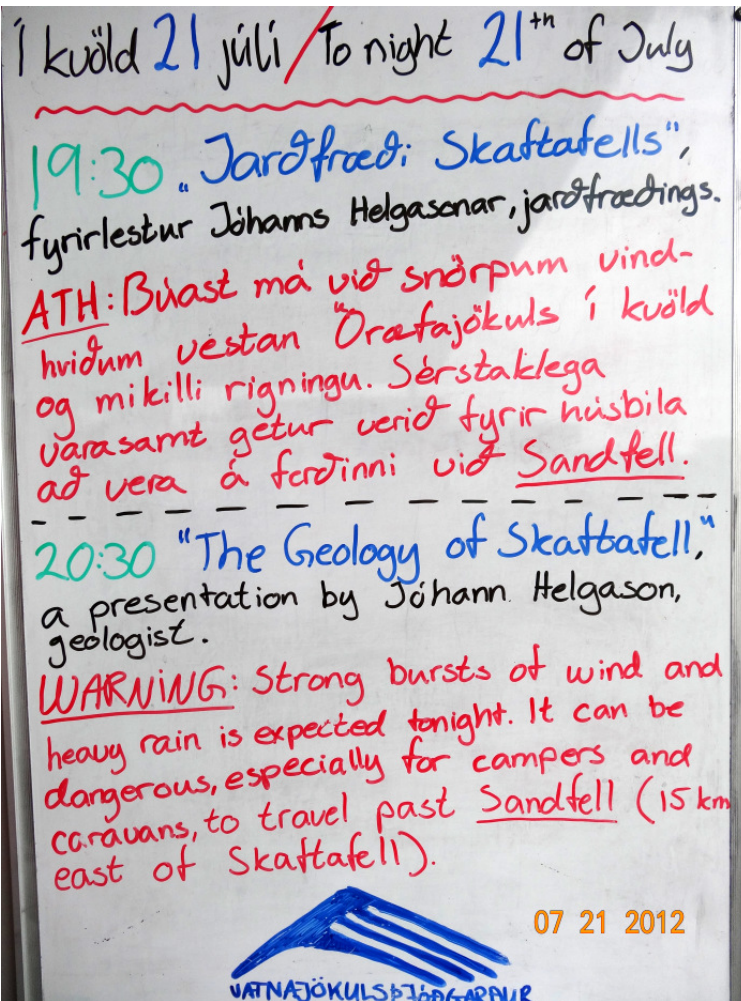 Í kvöld 21 júlí/To night 21th of July
19:30 „Jarðfræði Skaftafells",
fyrirlestur Jóhanns Helgasonar, jarðfræðings.
ATH: Búast má við snörpum vind-
hviðum vestan Öræfajökuls í kvöld
og mikilli rigningu. Sérstaklega
varasamt getur verið fyrir húsbíla
að vera á ferðinni við Sandfell.
20:30 "The Geology of Skaftafell,"
a presentation by Jóhann Helgason,
geologist.
WARNING: Strong bursts of wind and
heavy rain is expected tonight. It can be
dangerous, especially for campers and
caravans, to travel past Sandfell (15 km
east of Skaftafell).
07 21 2012
VATNAJÖKULSÞJÓÐGARÐUR